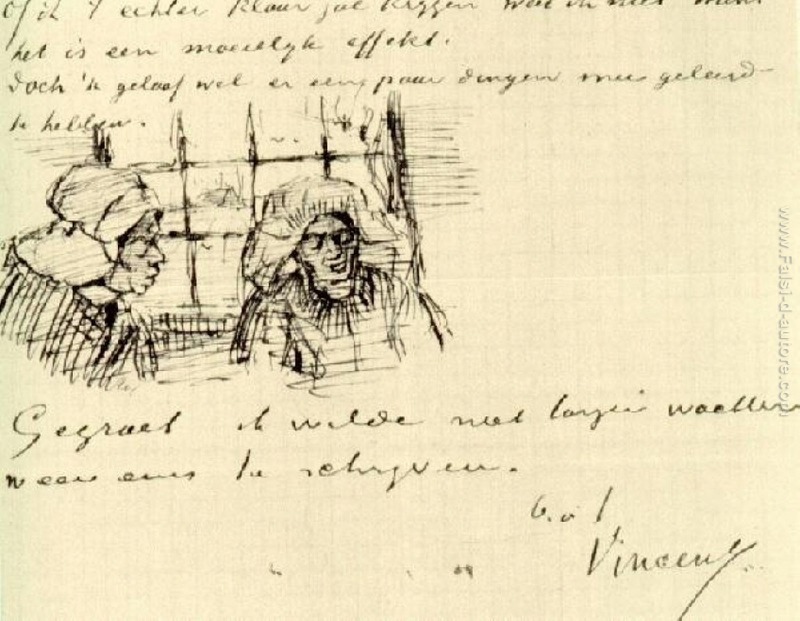 Of ik 't echter klaar zal krijgen wat ik niet
het is een moeielyk effekt.
Doch 'k geloof wel er een paar dingen mee geleerd
te hebben.
Gegroet ik wilde niet langer wachten
weer eens te schryven.
b. à t
Vincent
www.Falsi-d-autore.com